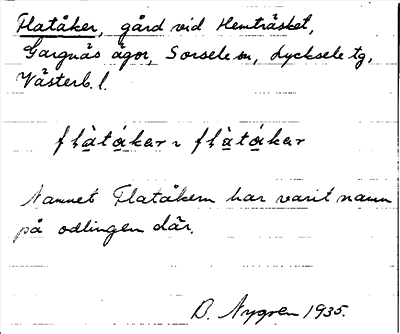 Flatåker, gård vid Hemträsket,
Gargnäs ägor, Sorsele sn, Lycksele tg,
Västerb. l.
flàtåkər ~ flàtåkər
Namnet Flatåkern har varit namn
på odlingen där.
D. Nygren 1935.